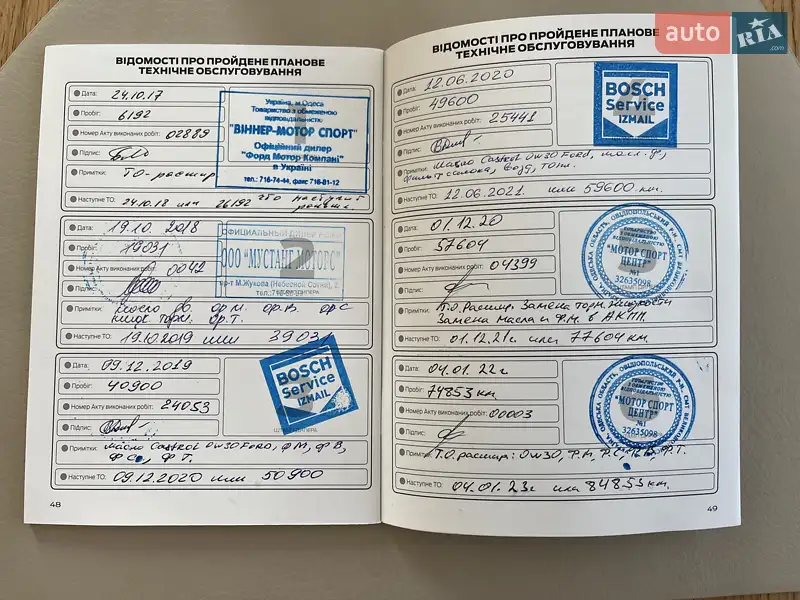 ВІДОМОСТІ ПРО ПРОЙДЕНЕ ПЛАНОВЕ
ТЕХНІЧНЕ ОБСЛУГОВУВАННЯ
Дата: 24.10.17
Пробіг: 6192
Номер Акту виконаних робіт: 02889
Підпис:
Примітки: ТО-расшир
Наступне ТО: 24.10.18 или 26192
Україна, м.Одеса
Товариство з обмеженою
відповідальністю
"ВІННЕР-МОТОР СПОРТ"
Офіційний дилер
"Форд Мотор Компані"
в Україні
тел.: 716-74-44, факс 716-81-12
Дата: 19.10. 2018
Пробіг: 19031
Номер Акту виконаних робіт: 0042
Підпис:
Примітки: масло дв. ф.м. ф.в. ф.с
Наступне ТО: 19.10.2019 или 39031
2
ОФИЦИАЛЬНЫЙ ДИЛЕР
ООО "МУСТАНГ МОТОРС"
пр-т М.Жукова (Небесной Сотни), 2
Дата: 09.12.2019
Пробіг: 40900
Номер Акту виконаних робіт: 24053
Підпис:
Примітки: масло Castrol 0W30 Ford, Ф М, Ф В,
Ф С, Ф Т.
Наступне ТО: 09.12.2020 или 50900
BOSCH
Service
IZMAIL
48
ВІДОМОСТІ ПРО ПРОЙДЕНЕ ПЛАНОВЕ
ТЕХНІЧНЕ ОБСЛУГОВУВАННЯ
Дата: 12.06.2020
Пробіг: 49600
Номер Акту виконаних робіт: 25441
Підпис:
Примітки: Масло Castrol 0W30 Ford, масл. ф,
Фильтр салона, возд, топл.
Наступне ТО: 12.06.2021. или 59600 км.
BOSCH
Service
IZMAIL
Дата: 01.12.20
Пробіг: 57604
Номер Акту виконаних робіт: 04399
Підпис:
Примітки: Т.О. Расшир. Замена торм. жидкости
Замена масла и Ф.М. в АКПП.
Наступне ТО: 01.12.21г или 77604 км
"МОТОР СПОРТ
ЦЕНТР"
№1
32635098
Дата: 04.01.22г
Пробіг: 74853 км
Номер Акту виконаних робіт: 00003
Підпис:
Примітки: Т.О. расшир: 0W30,
Наступне ТО: 04.01.23г или 84853 км.
"МОТОР СПОРТ
ЦЕНТР"
№1
32635098
49
auto RIA
.com